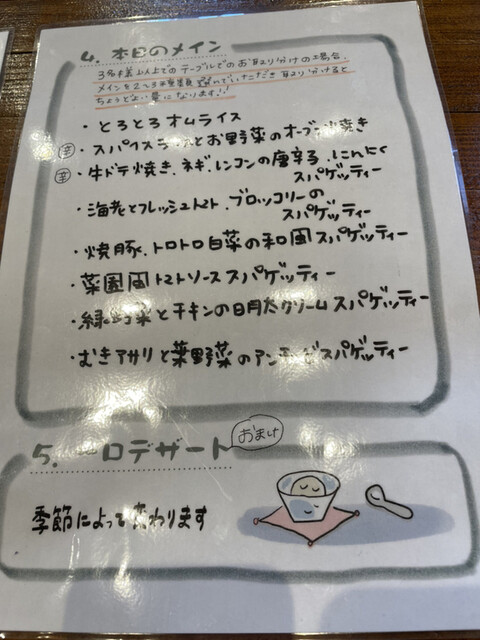 4. 本日のメイン
3名様以上でのテーブルでのお取り分けの場合、
メインを2~3種類選んでいただき取り分けると
ちょうどよい量になります!!
・とろとろオムライス
辛 ・スパイスラ とお野菜のオーブン焼き
辛 ・牛ドテ焼き、ネギ、レンコンの唐辛子、にんにく
スパゲッティー
・海老とフレッシュトマト、ブロッコリーの
スパゲッティー
・焼豚、トロトロ白菜の和風スパゲッティー
・菜園風トマトソーススパゲッティー
・緑野菜とチキンの明太クリームスパゲッティー
・むきアサリと葉野菜のアンチョビスパゲッティー
5. 一口デザート
おまけ
季節によって変わります